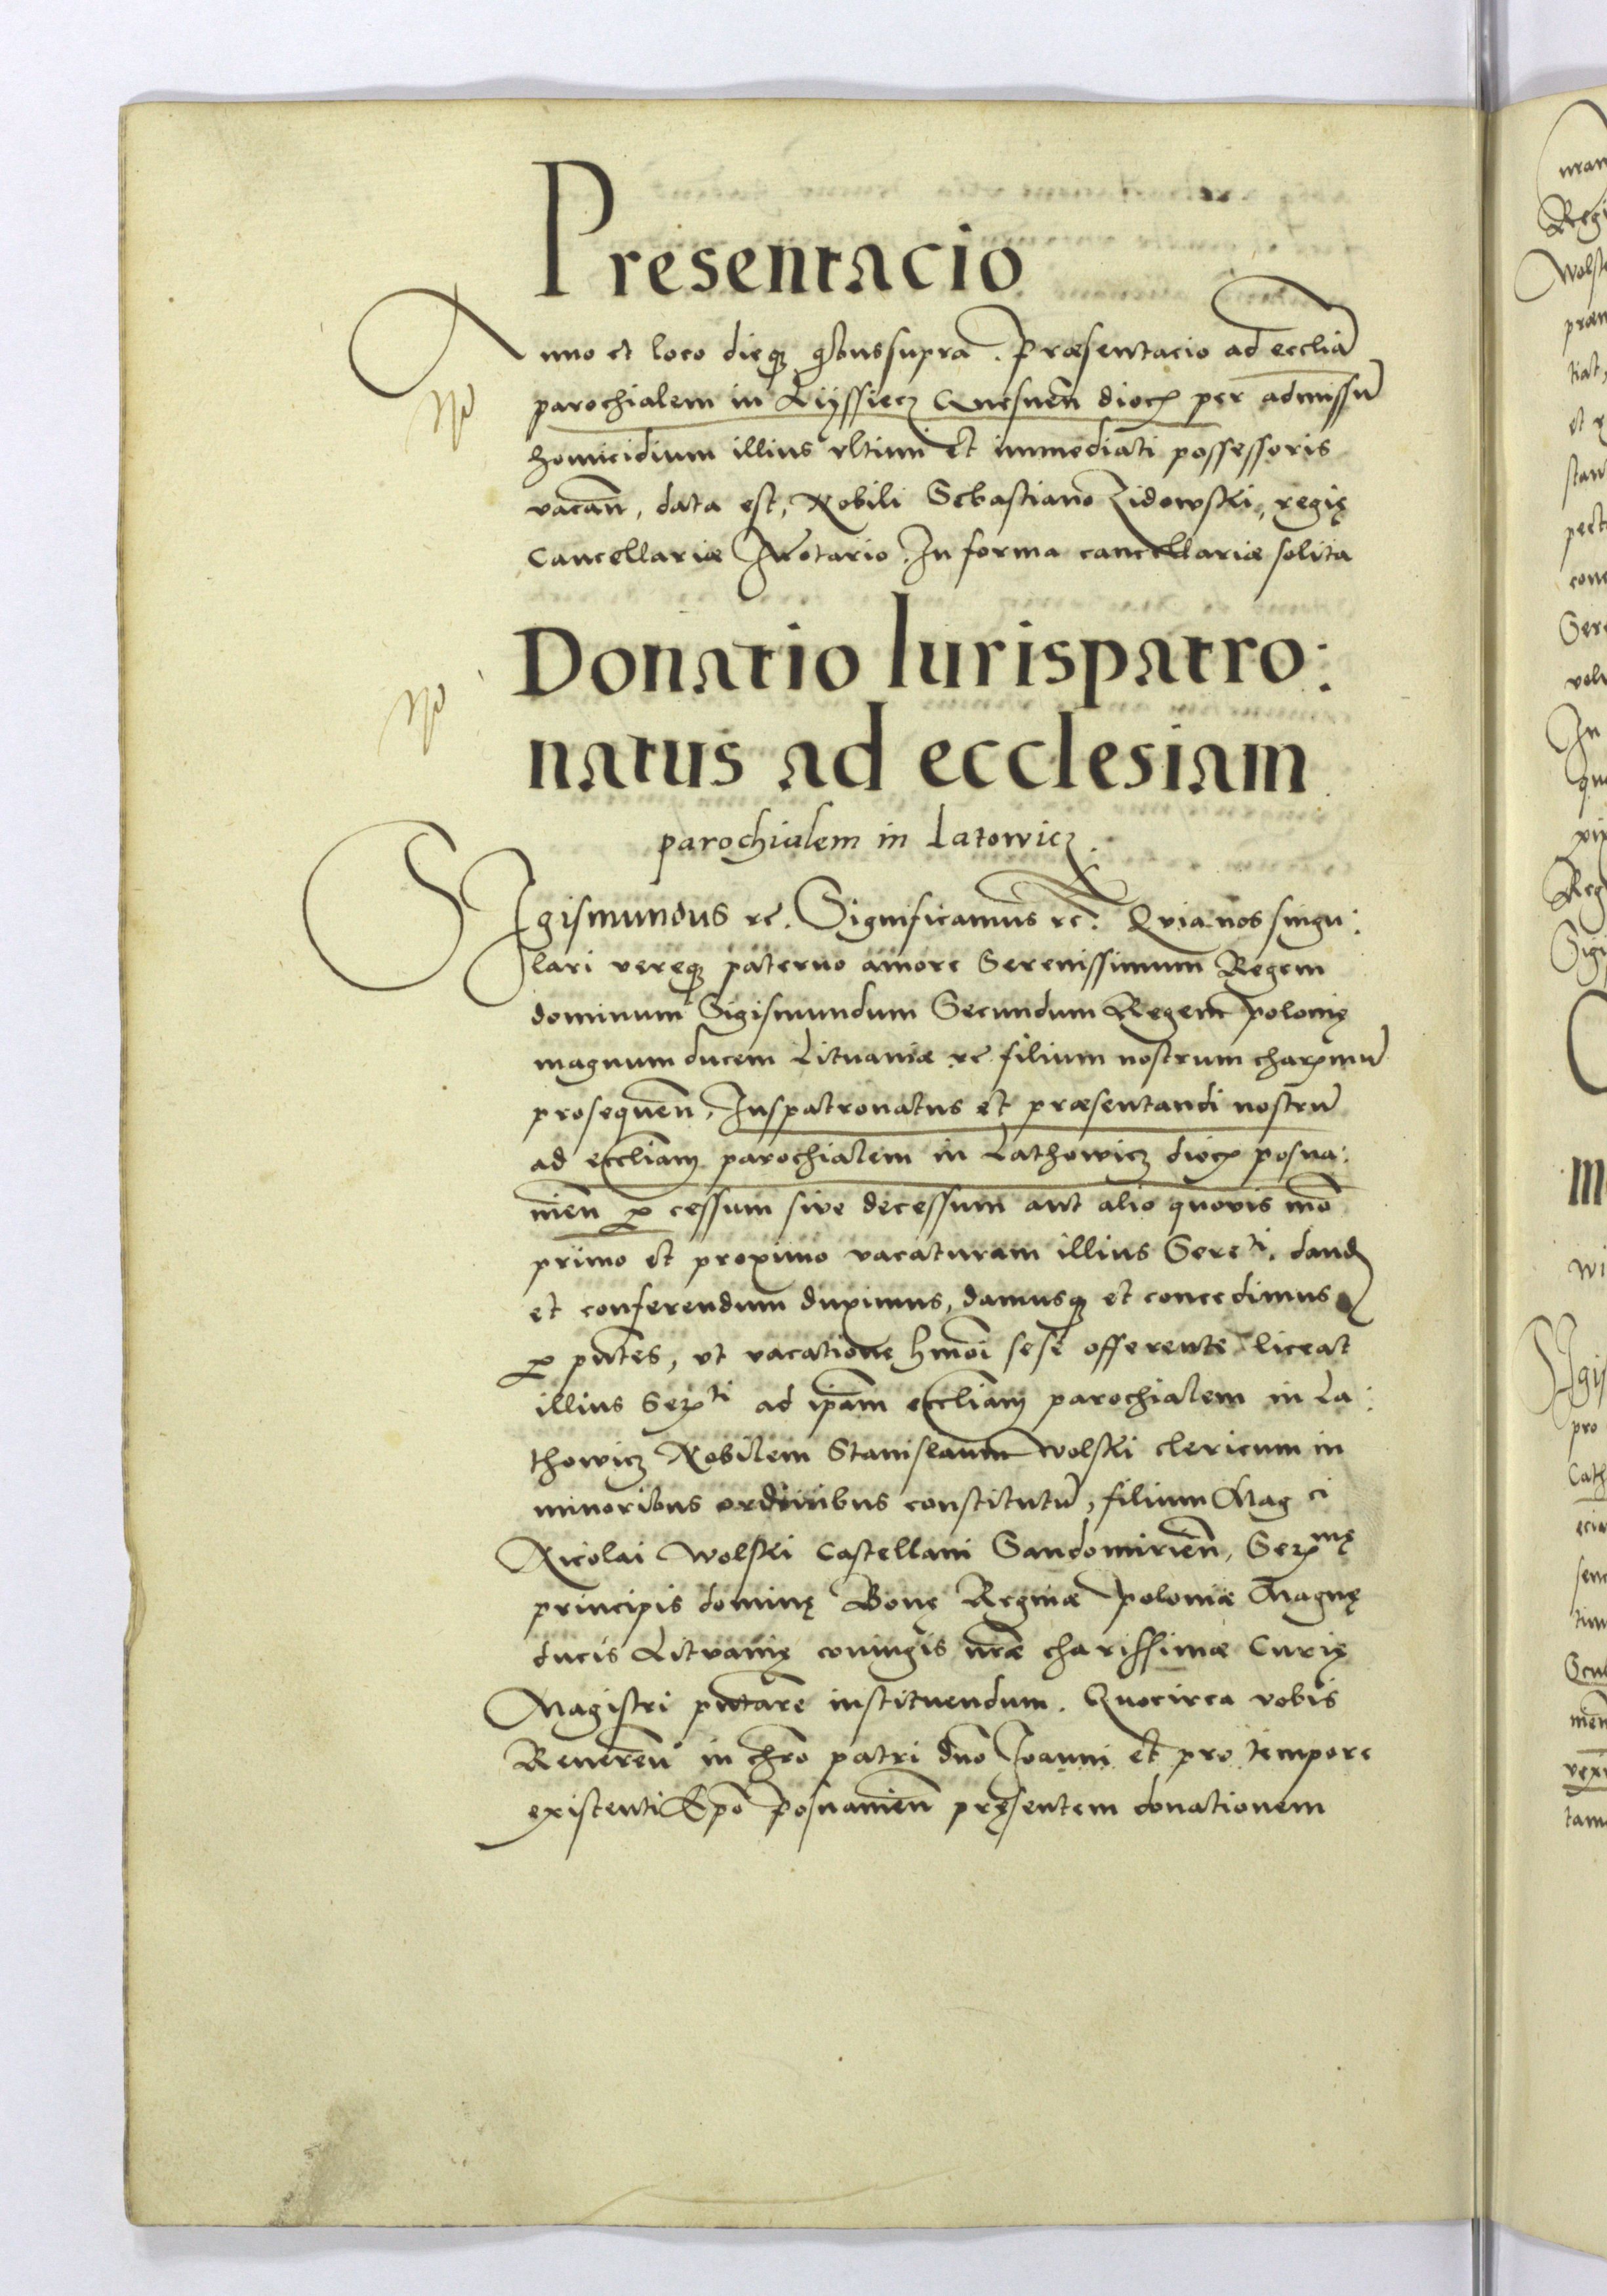 Presentacio
Anno et loco dieq̃ q̃bus supra. Præsentacio ad eccliã
parochialem in Liyssiecz Gnesneñ dioc̨ per admissũ
homicidium illius vltimi et immediati possessoris
vacañ, data est, Nobili Sebastiano Zidowski, regię
Cancellariæ Notario. In forma cancellariæ solita
Donatio Iurispatro:
natus ad ecclesiam
parochialem in Latowicz.
SIgismundus rc. Significamus rc. Quia nos singu:
lari vereq̃ paterno amore Serenissimum Regem
dominum Sigismundum Secundum Regem Polonię
magnum ducem Lituaniæ rc filium nostrum charxmũ
prosequeñ, Iuspatronatus et præsentandi nostrũ
ad eccliam parochialem in Lathowicz dioc̨ posna:
nieñ ꝑ cessum sive decessum aut alio quovis mõ
primo et proximo vacaturam illius Sereti. dand
et conferendum duximus, damusq̃ et concedimus
ꝑ pñtes, vt vacatione hmõi sese offerente liceat
illius Serti ad ipãm eccliam parochialem in La:
thowicz Nobilem Stanislaum Wolski clericum in
minoribus ordinibus constitutũ, filium Magci
Nicolai Wolski Castellani Sandomirieñ, Sermę
principis dominę Bonę Reginæ Poloniæ Magnę
ducis Lituanię coniugis nr̃æ charissimæ Curię
Magistri pñtare instituendum. Quocirca vobis
Reuereñ in chro patri dño Joanni et pro tempore
existenti Epõ Posnanieñ pręsentem donationem